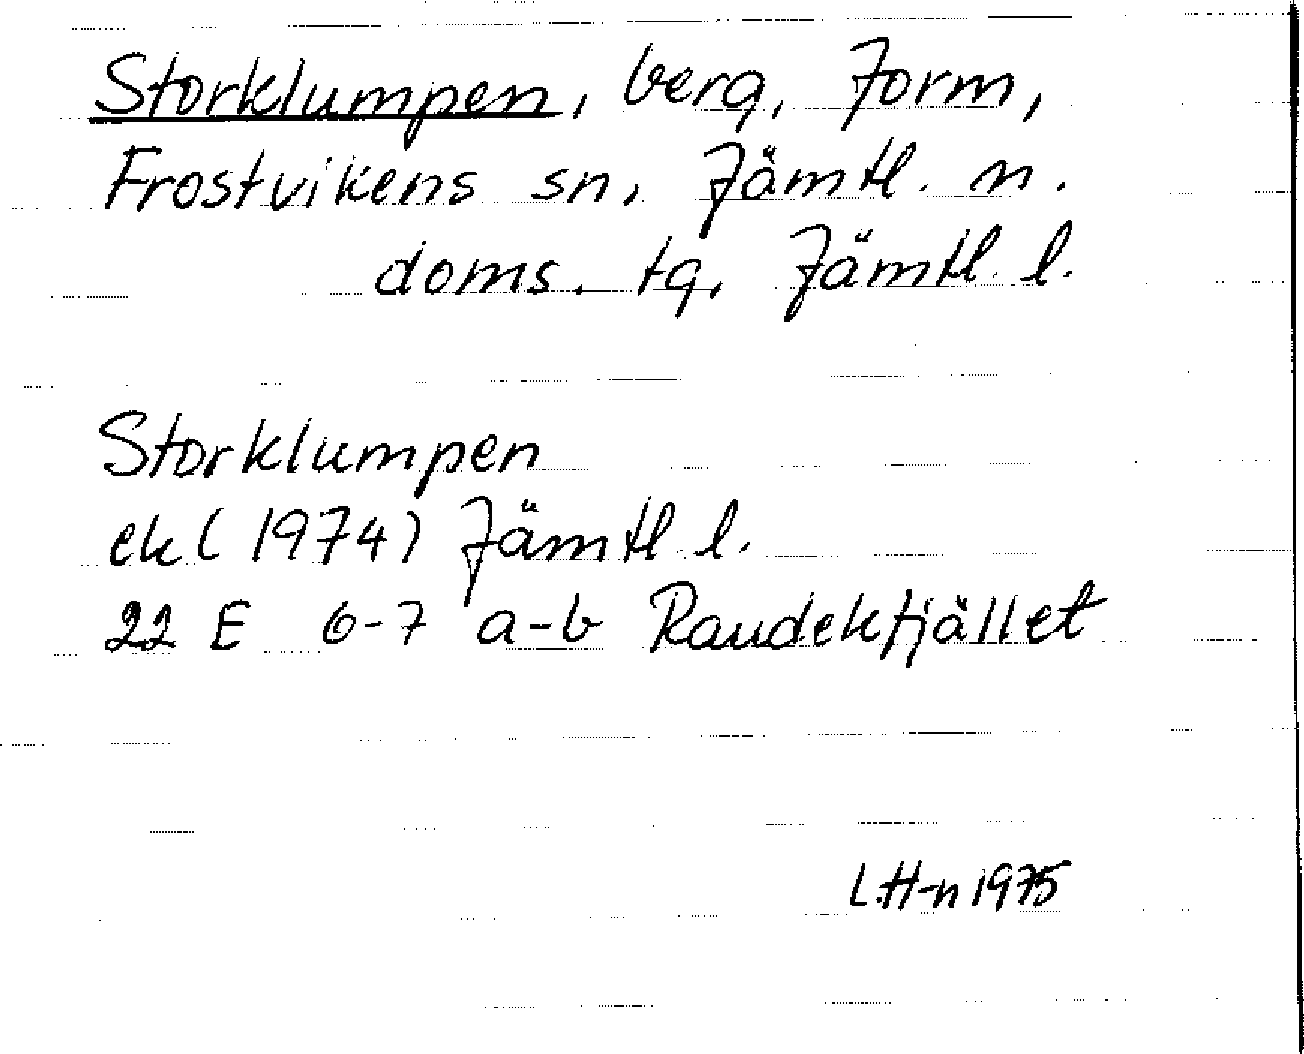 Storklumpen, berg, Jorm,
Frostvikens sn, Jämtl. n.
doms. tg, Jämtl. l.
Storklumpen
ek (1974) Jämtl. l.
22 E 6-7 a-b Raudekfjället
L.H-n 1975